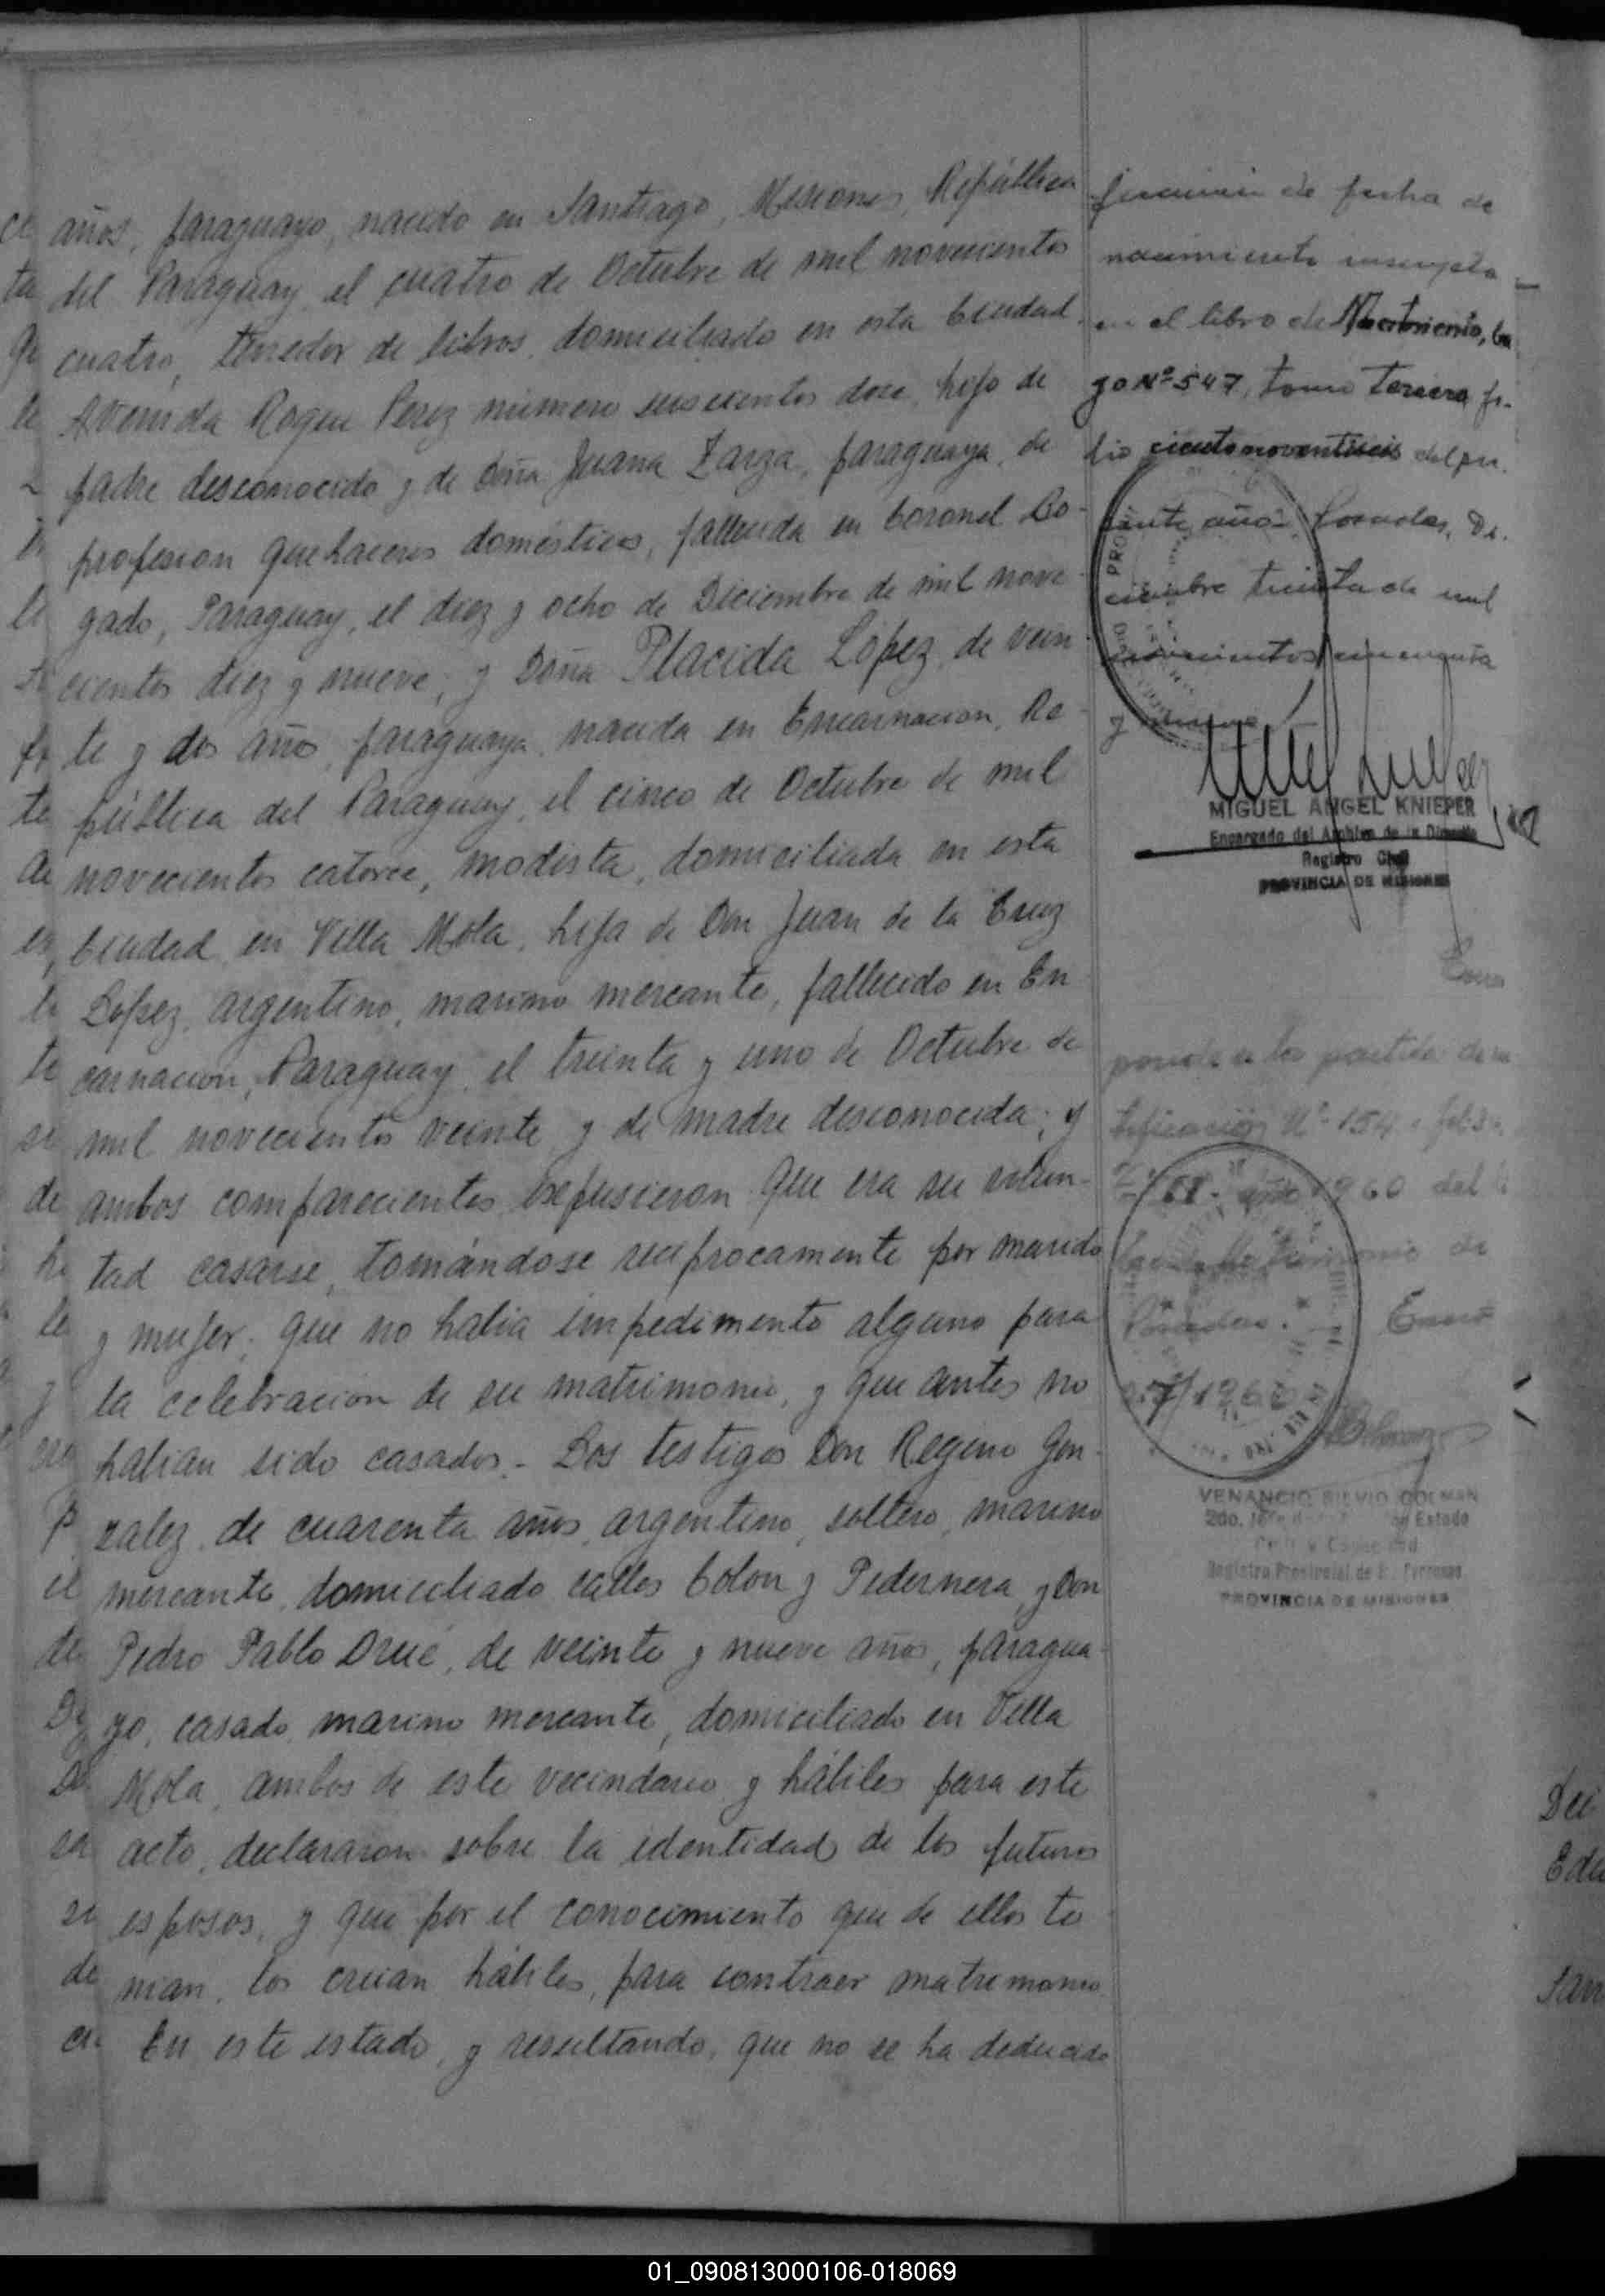 años, paraguayo, nacido en Santiago, Misiones, República
del Paraguay, el cuatro de Octubre de mil novecientos
cuatro, tenedor de libros, domiciliado en esta Ciudad
Avenida Roque Perez numero seiscientos doce, hijo de
padre desconocido y de Doña Juana Zarza, paraguaya, de
profesion quehaceres domésticos, fallecida en Coronel Bo-
gado, Paraguay, el diez y ocho de Diciembre de mil nove-
cientos diez y nueve; y Doña Placida López, de vein
te y dos años, paraguaya, nacida en Encarnacion, Re-
pública del Paraguay, el cinco de Octubre de mil
novecientos catorce, modista, domiciliada en esta
Ciudad, en Villa Mola, hija de Don Juan de la Cruz
Lopez, argentino, marino mercante, fallecido en En
carnacion, Paraguay, el treinta y uno de Octubre de
mil novecientos veinte y de madre desconocida; y
ambos comparecientes expusieron que era su volun-
tad casarse, tomándose reciprocamente por marido
y mujer; que no habia impedimento alguno para
la celebracion de su matrimonio, y que antes no
habian sido casados.- Los testigos Don Regino Gon-
zalez, de cuarenta años, argentino, soltero, marino
mercante, domiciliado calles Colon y Pedernera, y Don
Pedro Pablo Drué, de veinte y nueve años, paragua-
yo, casado, marino mercante, domiciliado en Villa
Mola, ambos de este vecindario y hábiles para este
acto, declararon sobre la identidad de los futuros
esposos, y que por el conocimiento que de ellos te
nian, los creian hábiles, para contraer matrimonio
En este estado, y resultando, que no se ha deducido
de fecha de
nacimiento inscripta
en el libro de
go Nº 547, tomo tercero fo-
lio ciento noventiseis del pre-
sente año.- Posadas, Di-
ciembre treinta de mil
novecientos cincuenta
y
MIGUEL ANGEL KNIEPER
Encargado del Archivo de la Dirección
Registro Civil
PROVINCIA DE MISIONES
partida de
Nº 154
año 1960 del
Matrimonio de
Posadas. Enero
1960
VENANCIO SILVIO COLMAN
2do. Estado
Registro Provincial de
PROVINCIA DE MISIONES
01_090813000106-018069